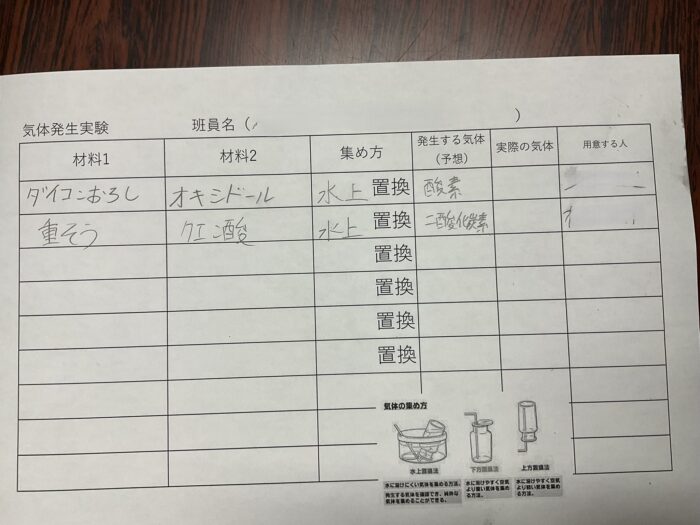 気体発生実験 班員名( )
材料1 材料2 集め方 発生する気体(予想) 実際の気体 用意する人
ダイコンおろし オキシドール 水上 置換 酸素
重そう クエン酸 水上 置換 二酸化炭素
置換
置換
置換
置換
気体の集め方
水上置換法 下方置換法 上方置換法
水に溶けにくい気体を集める方法。
発生する気体を確認でき、純粋な
気体を集めることができる。
水に溶けやすく空気
より重い気体を集め
る方法。
水に溶けやすく空気
より軽い気体を集め
る方法。